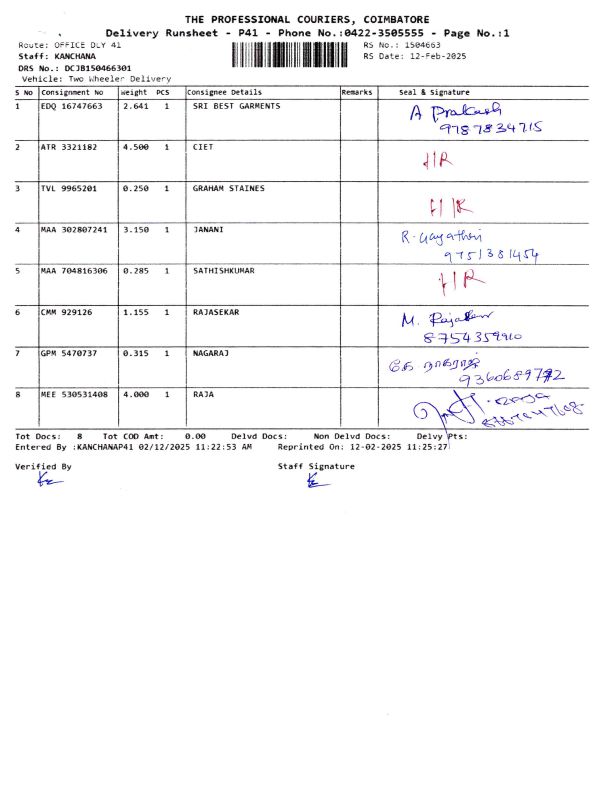 THE PROFESSIONAL COURIERS, COIMBATORE
Delivery Runsheet - P41 - Phone No.:0422-3505555 - Page No.:1
Route: OFFICE DLY 41 RS No.: 1504663
Staff: KANCHANA RS Date: 12-Feb-2025
DRS No.: DCJB150466301
Vehicle: Two Wheeler Delivery
S No Consignment No Weight PCS Consignee Details Remarks Seal & Signature
1 EDQ 16747663 2.641 1 SRI BEST GARMENTS A Prakash
9787834715
2 ATR 3321182 4.500 1 CIET
3 TVL 9965201 0.250 1 GRAHAM STAINES
4 MAA 302807241 3.150 1 JANANI R. Gayathri
9751381454
5 MAA 704816306 0.285 1 SATHISHKUMAR
6 CMM 929126 1.155 1 RAJASEKAR M.
8754359910
7 GPM 5470737 0.315 1 NAGARAJ நாகராஜ்
9360689772
8 MEE 530531408 4.000 1 RAJA
Tot Docs: 8 Tot COD Amt: 0.00 Delvd Docs: Non Delvd Docs: Delvy Pts:
Entered By :KANCHANAP41 02/12/2025 11:22:53 AM Reprinted On: 12-02-2025 11:25:27
Verified By Staff Signature